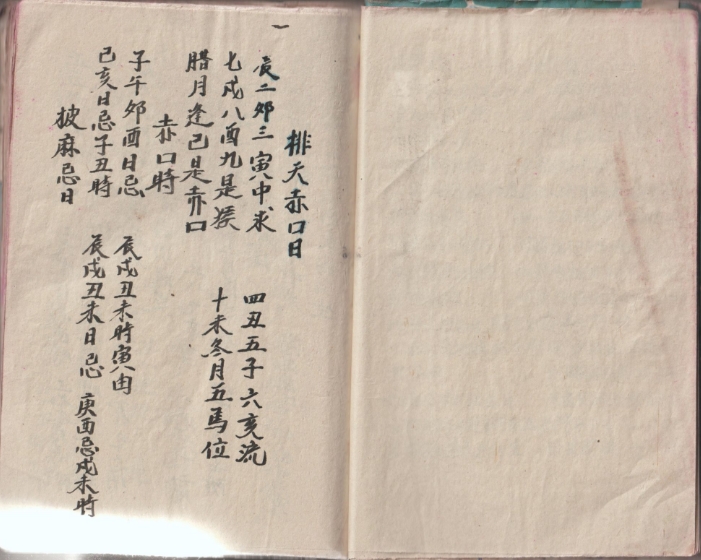 排天赤口日
辰二夘三寅中求 四丑五子六亥流
七戍八酉九是猴 十未冬月五馬位
腊月逢巳是赤口
赤口時
子午夘酉日忌 辰戍丑未時寅由
己亥日忌子丑時 辰戍丑未日忌 庚酉忌戍未時
披麻忌日